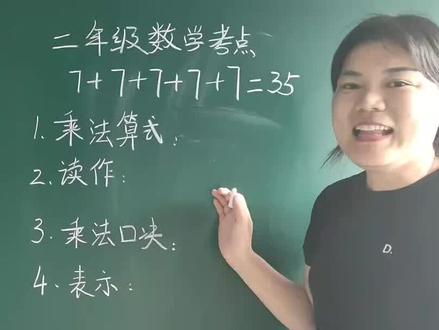 二年级数学考点
7+7+7+7+7=35
1.乘法算式:
2.读作:
3.乘法口决:
4.表示:
D.